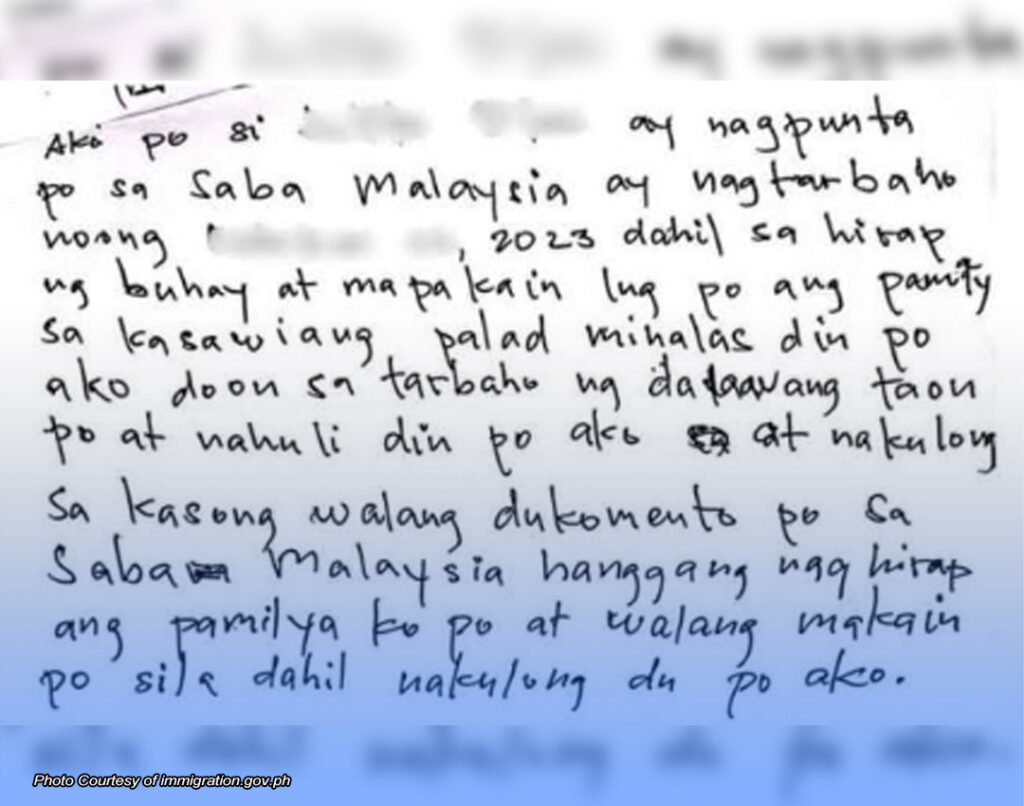 Ako po si ay nagpunta
po sa Saba Malaysia ay nagtarbaho
noong , 2023 dahil sa hirap
ng buhay at mapakain lng po ang
sa kasawiang palad minalas din po
ako doon sa tarbaho ng dalawang taon
po at nahuli din po ako at nakulong
sa kasong walang dukomento po sa
Saba Malaysia hanggang nag hirap
ang pamilya ko po at walang makain
po sila dahil nakulong du po ako.
Photo Courtesy of immigration.gov.ph